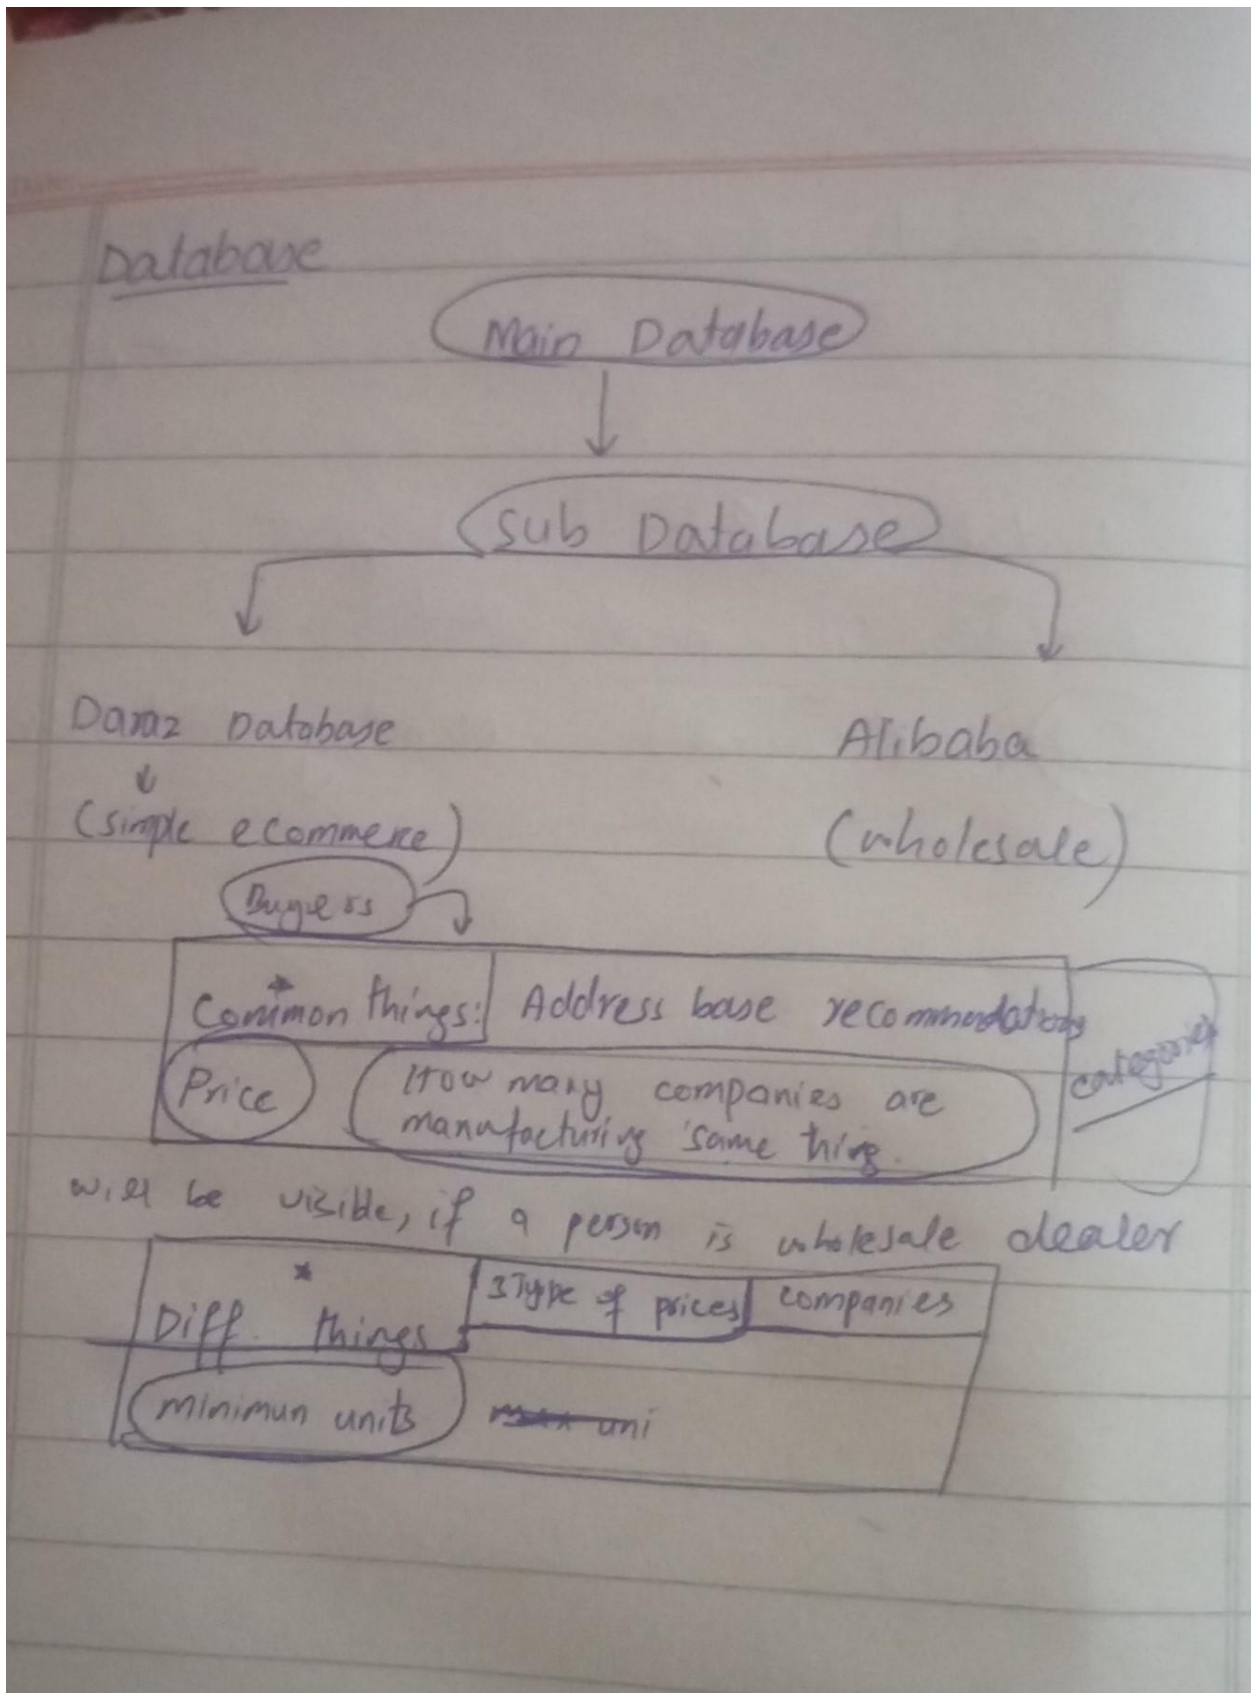 Database
Main Database
Sub Database
Daraz Database
Alibaba
(simple ecommerce)
(wholesale)
Buyers
Common things: Address base recommendations
categories
Price
How many companies are
manufacturing same thing.
will be visible, if a person is wholesale dealer
Diff. things
3 Type of prices
companies
minimun units
uni